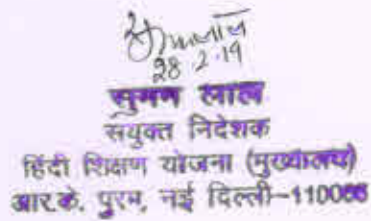 28.2.19
सुमन लाल
संयुक्त निदेशक
हिंदी शिक्षण योजना (मुख्यालय)
आर.के. पुरम, नई दिल्ली-110066